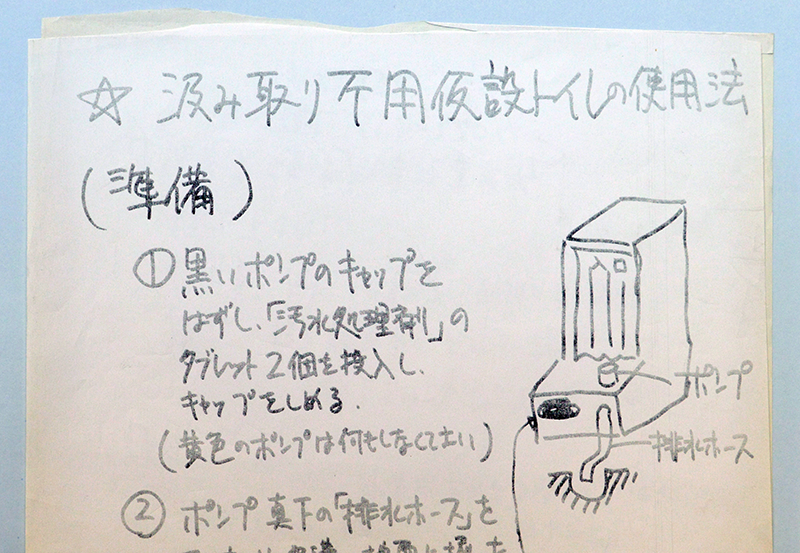 ☆ 汲み取り不用仮設トイレの使用法
(準備)
① 黒いポンプのキャップを
はずし、「汚水処理剤」の
タブレット2個を投入し、
キャップをしめる.
(黄色のポンプは何もしなくてよい)
入口
ポンプ
排水ホース
② ポンプ真下の「排水ホース」を